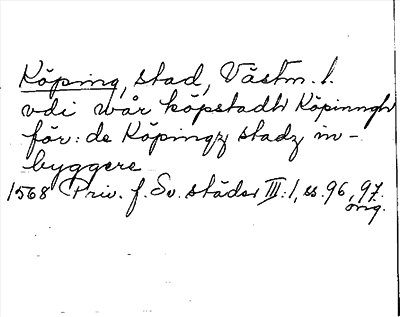 Köping, stad, Västm. l.
vdi wår köpstadh Köpinngh
för: de Köpingz stadz in-
byggere
1568 Priv. f. Sv. städer III:1, ss. 96, 97.
orig.